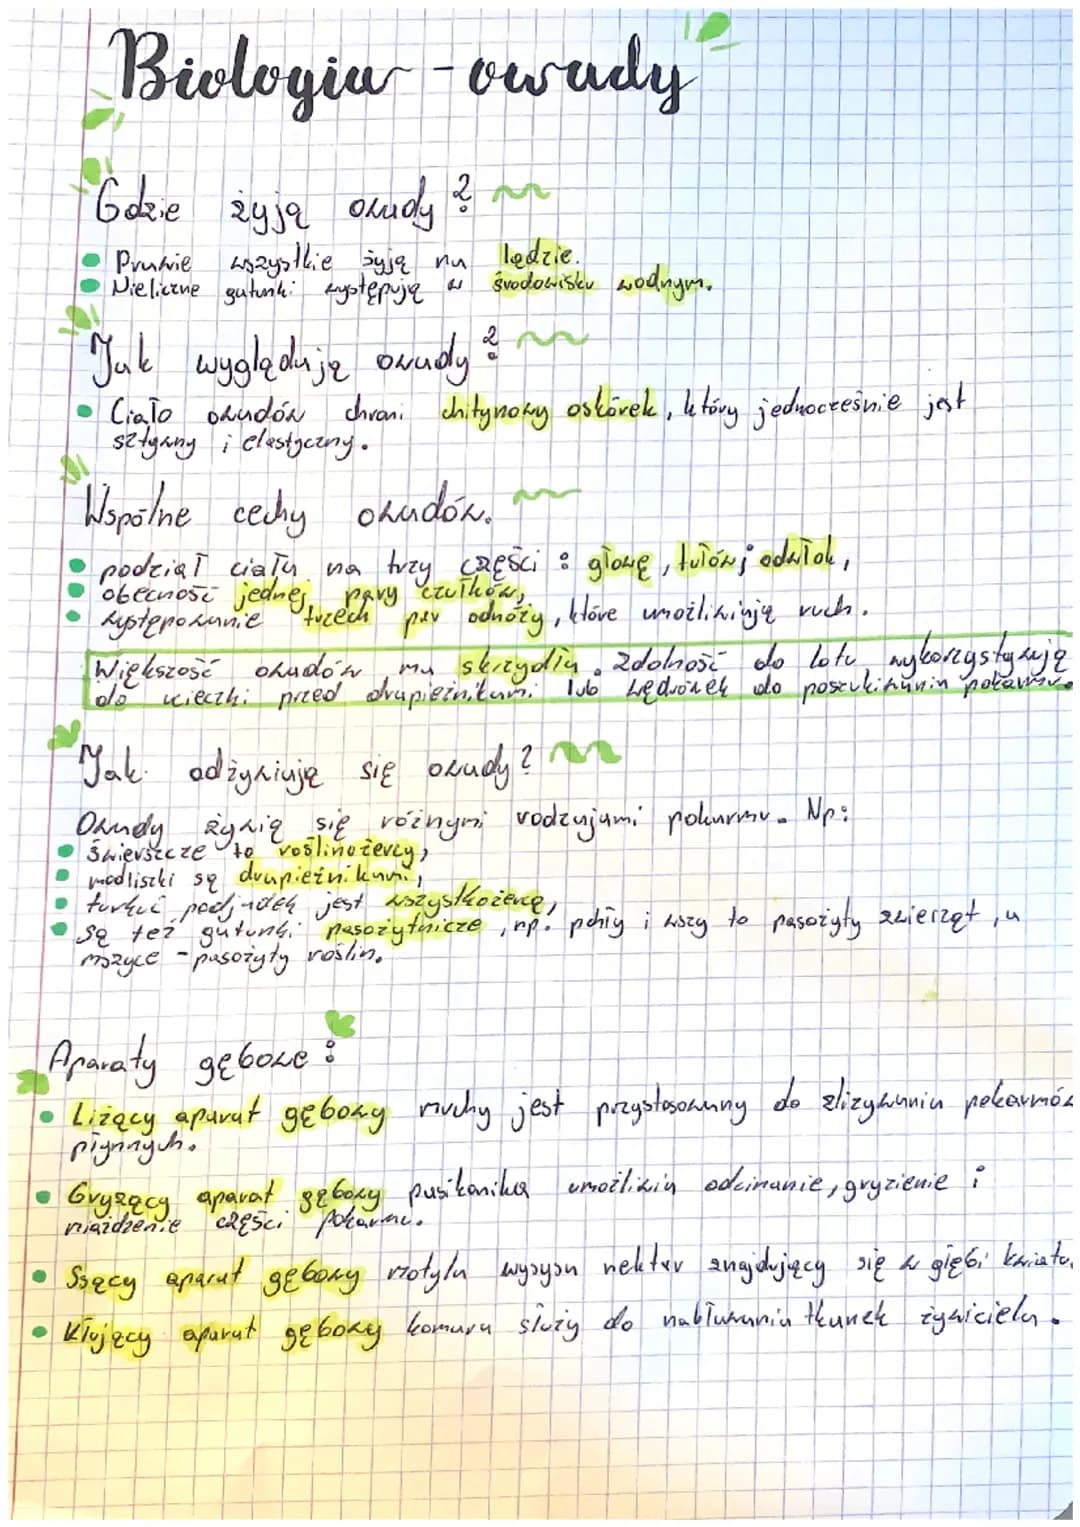 Biologia - owady
Gdzie żyją owady?
Prawie wszystkie żyją na lądzie.
Nieliczne gatunki występują w środowisku wodnym.
Jak wyglądają owady?
Ciało owadów chroni chitynowy oskórek, który jednocześnie jest
sztywny i elastyczny.
Wspólne cechy owadów.
podział ciała na trzy części: głowę, tułów i odwłok,
obecność jednej pary czułków,
występowanie trzech par odnóży, które umożliwiają ruch.
Większość owadów ma skrzydła. Zdolność do lotu wykorzystywują
do ucieczki przed drapieżnikami lub wędrówek do poszukiwania pokarmu.
Jak odżywiają się owady?
Owady żywią się różnymi rodzajami pokarmu. Np:
świerszcze to roślinożercy,
modliszki są drapieżnikami,
turkuć podjadek jest wszystkożercą,
są też gatunki pasożytnicze, np. pchły i wszy to pasożyty zwierząt, a
mszyce - pasożyty roślin.
Aparaty gębowe:
Liżący aparat gębowy muchy jest przystosowany do zlizywania pokarmów
płynnych.
Gryzący aparat gębowy pasikonika umożliwia odcinanie, gryzienie i
miażdżenie części pokarmu.
Ssący aparat gębowy motyla wysysa nektar znajdujący się w głębi kwiatu.
Kłujący aparat gębowy komara służy do nakłuwania tkanek żywiciela.